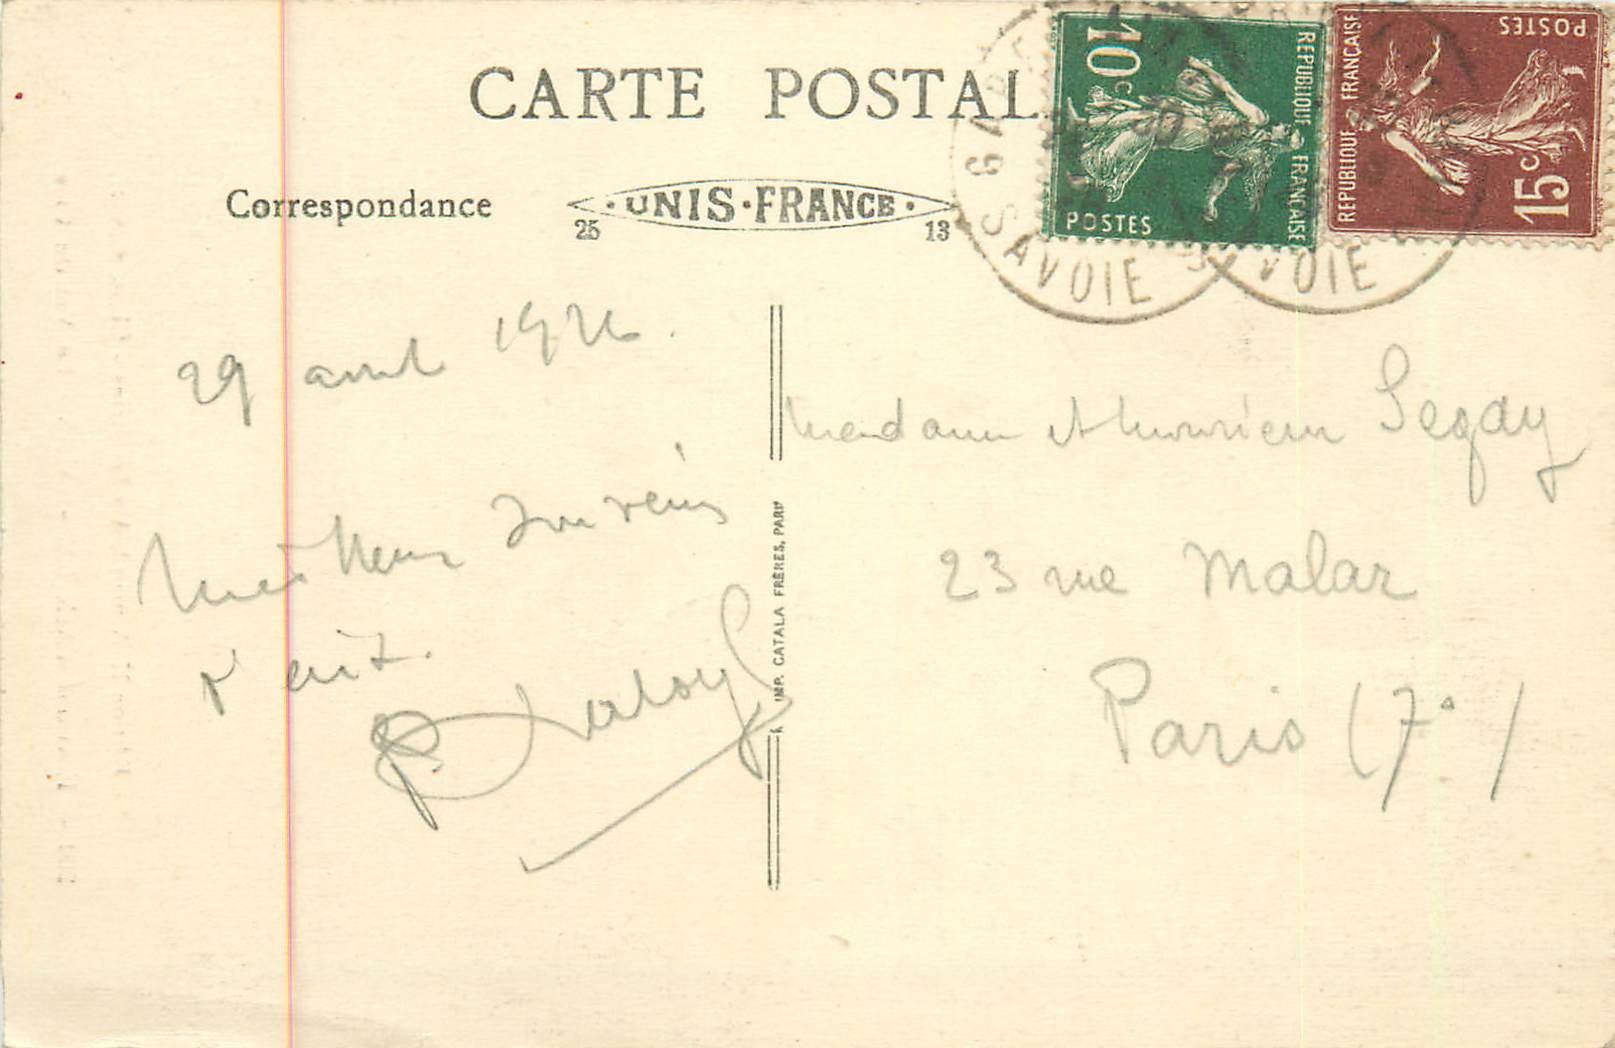 CARTE POSTAL
Correspondance
UNIS-FRANCE
25 13
10c
REPUBLIQUE FRANÇAISE
POSTES
15c
REPUBLIQUE FRANÇAISE
POSTES
GARE
SAVOIE
VOIE
29 avril 1926.
Meilleurs souvenirs
d'ent.
Madame et Monsieur Segay
23 rue Malar
Paris (7e)
IMP. CATALA FRÈRES, PARIS